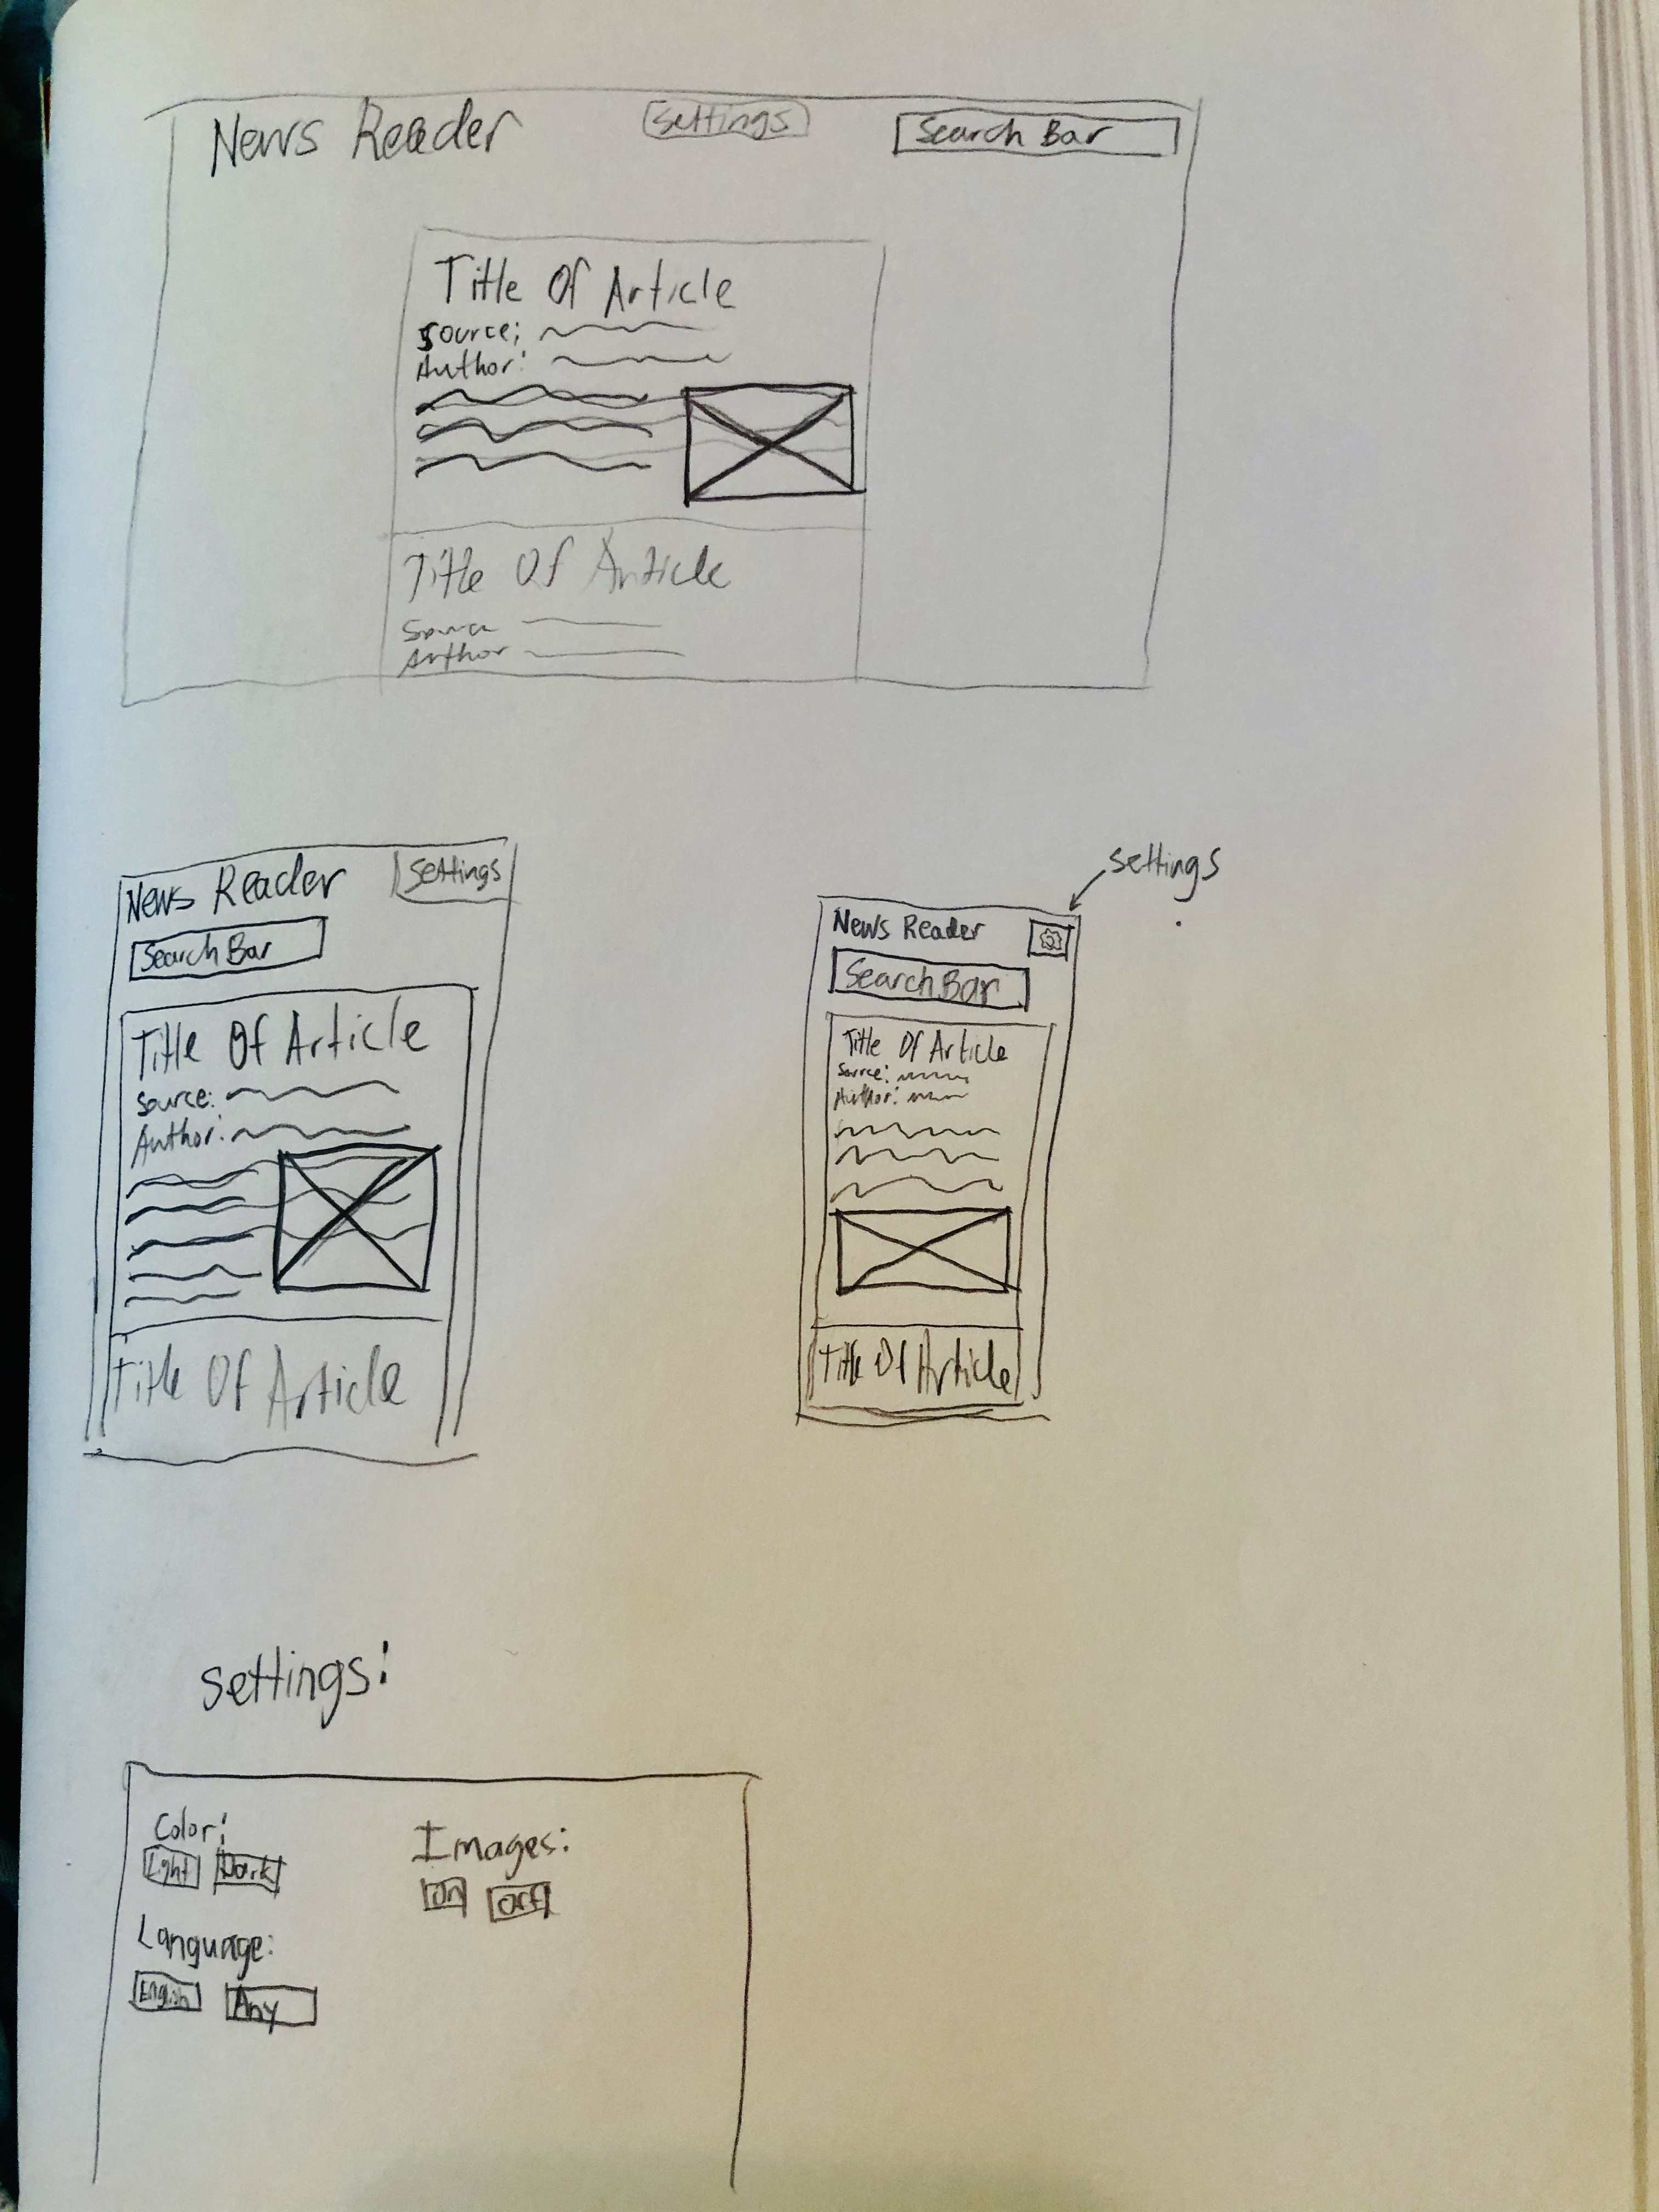 News Reader
Settings
Search Bar
Title Of Article
Source:
Author:
Title Of Article
Source
Author
News Reader
Settings
Search Bar
Title Of Article
Source:
Author:
Title Of Article
settings
News Reader
Search Bar
Title Of Article
Source:
Author:
Title Of Article
settings:
Color:
Light Dark
Images:
On Off
Language:
English Any